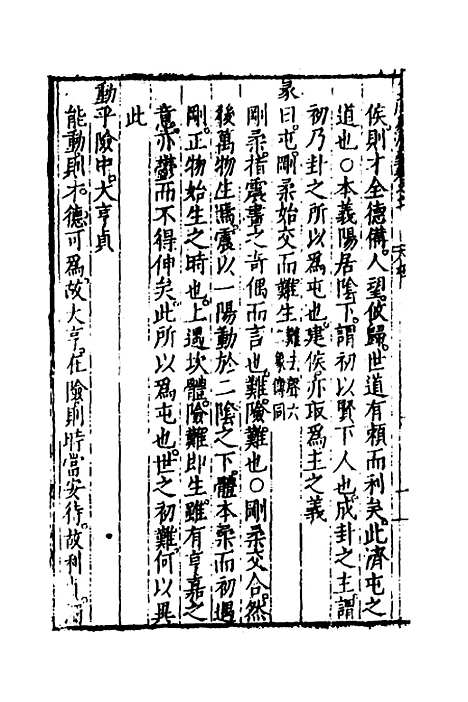 侯則才全德備人望攸歸世道有賴而利矣此濟屯之
道也○本義陽居陰下謂初以賢下人也成卦之主謂
初乃卦之所以為屯也建侯亦取為主之義
彖曰屯剛柔始交而難生難去聲六彖傳同
剛柔指震畫之奇偶而言也難險難也○剛柔交合然
後萬物生焉震以一陽動於二陰之下體本柔而初遇
剛正物始生之時也上遇坎體險難即生雖有亨嘉之
意亦鬱而不得伸矣此所以為屯也世之初難何以異
此
動乎險中大亨貞
能動則才德可為故大亨在險則時當安待故利